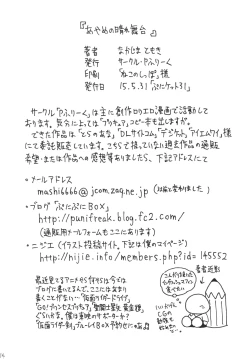 『あやめの晴れ舞台』
著者 なかじまてもき
発行 サークル・Pふりーく
印刷 「ねこのしっぽ」様
発行日 15.5.31「ぷにケット31」
サークル「Pふりーく」は主に創作ロリエロ漫画で活動して
おります。気分によっては「プリキュア」コピー本も出しますが。
できた作品は「とらのあな」「DLサイトコム」「デジケット」「アイエムアイ」様
にて委託販売しています。こちらで扱っていない過去作品の通販
希望・または作品への感想等ありましたら、下記アドレスにて
・メールアドレス
mashi6666@jcom.zaq.ne.jp
・ブログ「ぷにぷにBOX」
http://punifreak.blog.fc2.com/
(通販用メールフォームもここにあります)
・ニジエ(イラスト投稿サイト。下記は僕のマイページ)
http://nijie.info/members.php?id=145552
最近見てるアニメや特撮は今では
ブログに書いてるんで、ここにはあまり
書くことがない…「仮面ライダードライブ」
「GO!プリンセスプリキュア」「聖闘士星矢 黄金魂」
著者近影